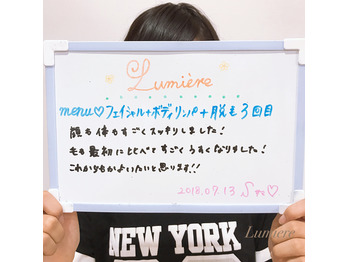 Lumière
menu♡フェイシャル+ボディリンパ+脱毛3回目
顔も体もすごくスッキリしました!
毛も最初に比べてすごくうすくなりました!
これからもかよいたいと思ります!!
2018.09.13
Lumiere
NEW YORK